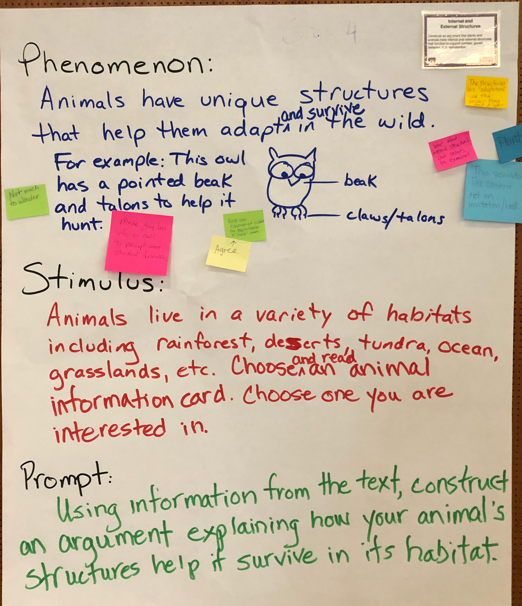 4
Internal and
External Structures
Phenomenon:
Animals have unique structures
and survive
that help them adapt in the wild.
For example: This owl
has a pointed beak
and talons to help it
hunt.
beak
claws/talons
Not much
to wonder
Agree
Stimulus:
Animals live in a variety of habitats
including rainforest, deserts, tundra, ocean,
and read
grasslands, etc. Choose an animal
information card. Choose one you are
interested in.
Prompt:
Using information from the text, construct
an argument explaining how your animal's
structures help it survive in its habitat.